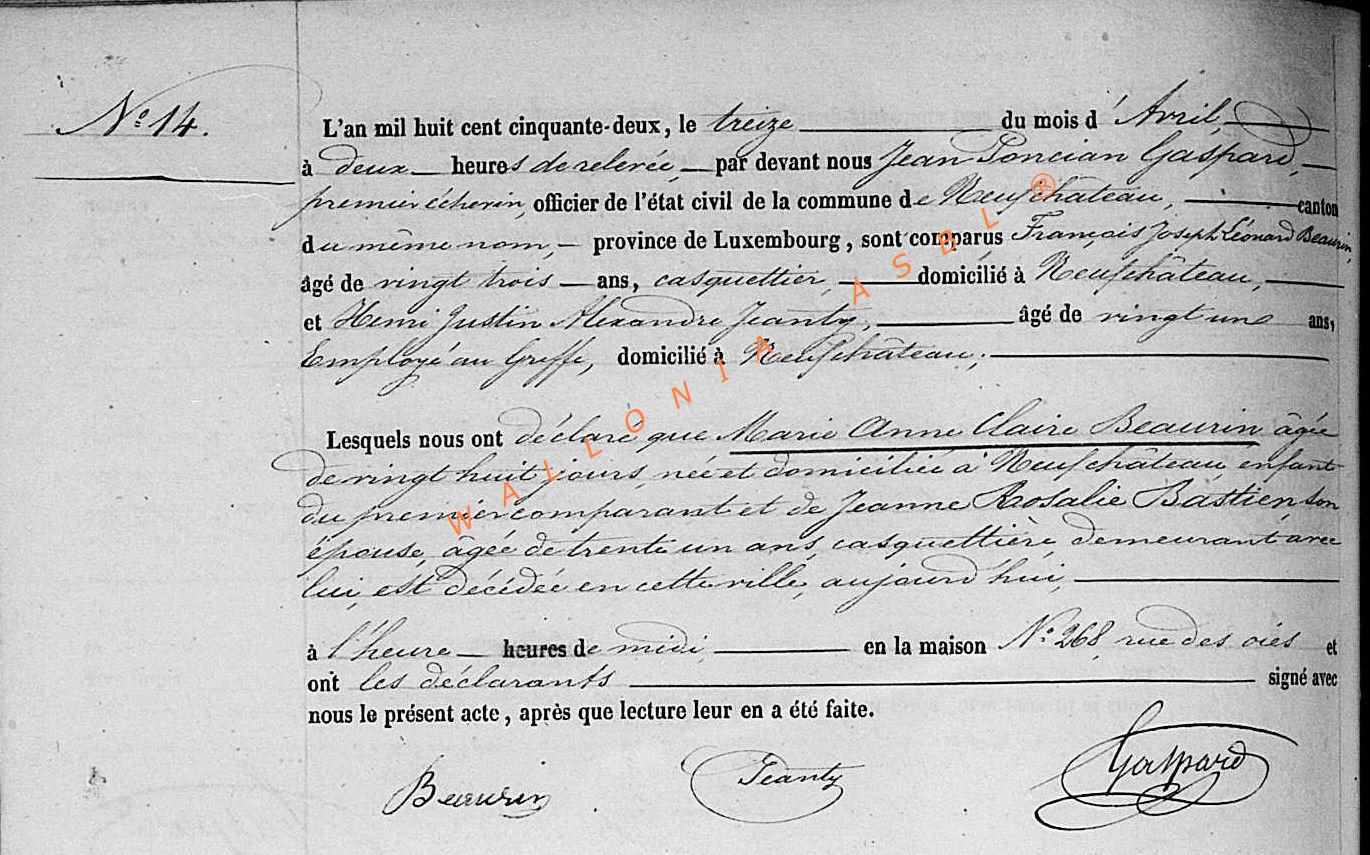 N° 14.
L'an mil huit cent cinquante-deux, le treize du mois d'Avril,
à deux heures de relevée, par devant nous Jean Poncian Gaspard,
premier échevin, officier de l'état civil de la commune de Neufchâteau, canton
du même nom, province de Luxembourg, sont comparus François Joseph Léonard Beaurin,
âgé de vingt trois ans, casquettier, domicilié à Neufchâteau,
et Henri Justin Alexandre Jeanty, âgé de vingt un ans,
Employé au Greffe, domicilié à Neufchâteau;
Lesquels nous ont déclaré que Marie Anne Claire Beaurin âgée
de vingt huit jours, née et domiciliée à Neufchâteau, enfant
du premier comparant et de Jeanne Rosalie Bastien, son
épouse, âgée de trente un ans, casquettière, demeurant avec
lui, est décédée en cette ville, aujourd'hui,
à l'heure heures de midi, en la maison N° 268, rue des oies et
ont les déclarants signé avec
nous le présent acte, après que lecture leur en a été faite.
Beaurin Jeanty Gaspard
WALLONIA ASBL ®